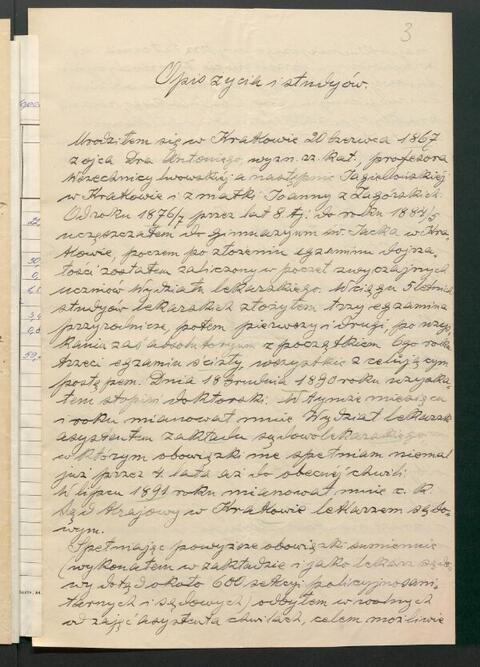 3
Opis życia i studyów.
Urodziłem się w Krakowie 20 czerwca 1867
z ojca Dra Antoniego, wyzn. rz. kat., profesora
Wszechnicy lwowskiej a następnie Jagielońskiej
w Krakowie i z matki Joanny z Zagórskich.
Od roku 1876/7 przez lat 8 tj. do roku 1884/5
uczęszczałem do gimnazyum św. Jacka w Kra-
kowie, poczem po złożeniu egzaminu dojrza-
łości zostałem zaliczony w poczet zwyczajnych
uczniów Wydziału lekarskiego. W ciągu 5 letnich
studyów lekarskich złożyłem trzy egzamina
przyrodnicze, potem pierwszy i drugi, po uzys-
kaniu zaś absolutoryum z początkiem 6go roku
trzeci egzamin ścisły, wszystkie z celującym
postępem. Dnia 18 Grudnia 1890 roku uzyska-
łem stopień doktorski. W tymże miesiącu
i roku mianował mnie Wydział lekarski
asystentem zakładu sądowolekarskiego
w którym obowiązki me spełniam niemal
już przez 4 lata aż do obecnej chwili.
W lipcu 1891 roku mianował mnie c. k.
Sąd Krajowy w Krakowie lekarzem sądo-
wym.
Spełniając powyższe obowiązki sumiennie
(wykonałem w zakładzie i jako lekarz sądo-
wy dotąd około 600 sekcyj policyjno sani-
tarnych i sądowych) odbyłem w wolnych
od zajęć asystenta chwilach, celem możliwie